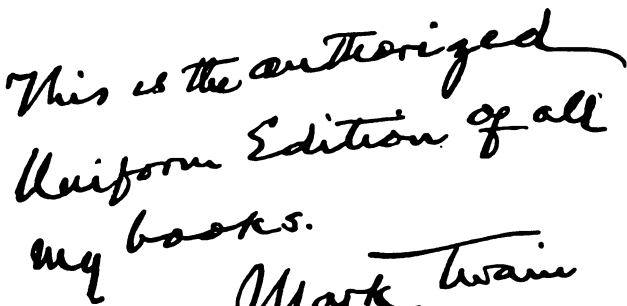 This is the authorized
Uniform Edition of all
my books.
Mark Twain